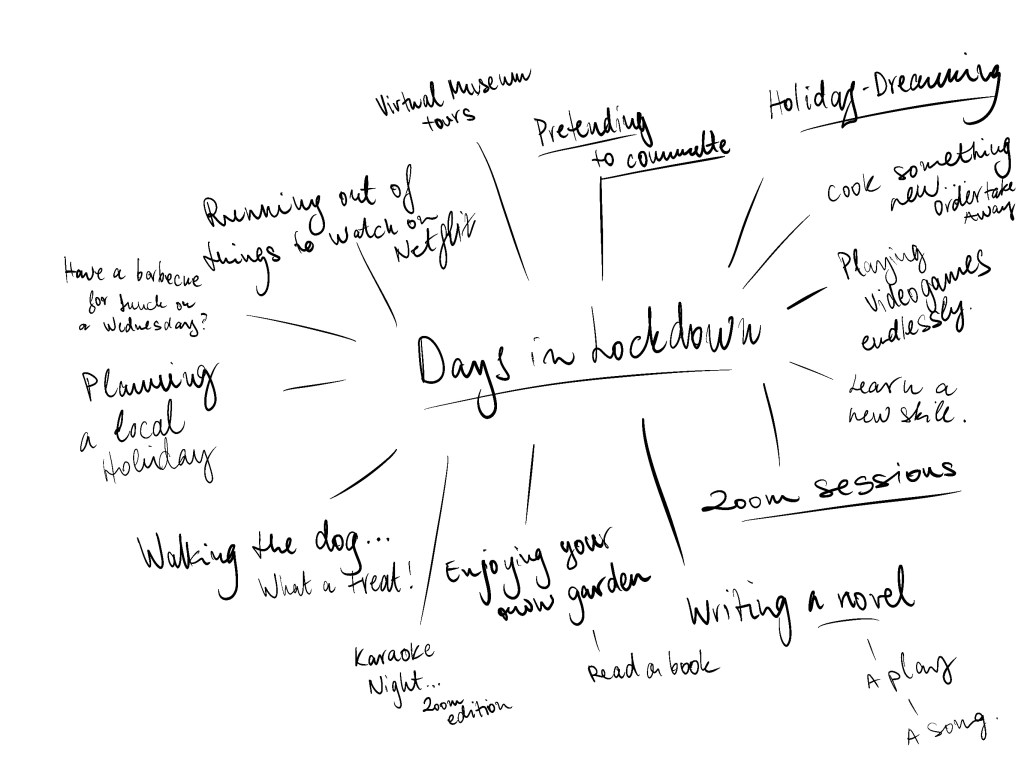 Virtual Museum
tours
Pretending
to commute
Holiday-Dreaming
Cook something
new... Order take
Away
Running out of
things to watch on
Netflix
Have a barbecue
for lunch on
a Wednesday?
Playing
videogames
endlessly.
Days in Lockdown
Planning
a local
Holiday
Learn a
new skill.
Zoom sessions
Walking the dog...
What a treat!
Enjoying your
own garden
Writing a novel
Karaoke
Night...
Zoom
edition
Read a book
A play
A song.